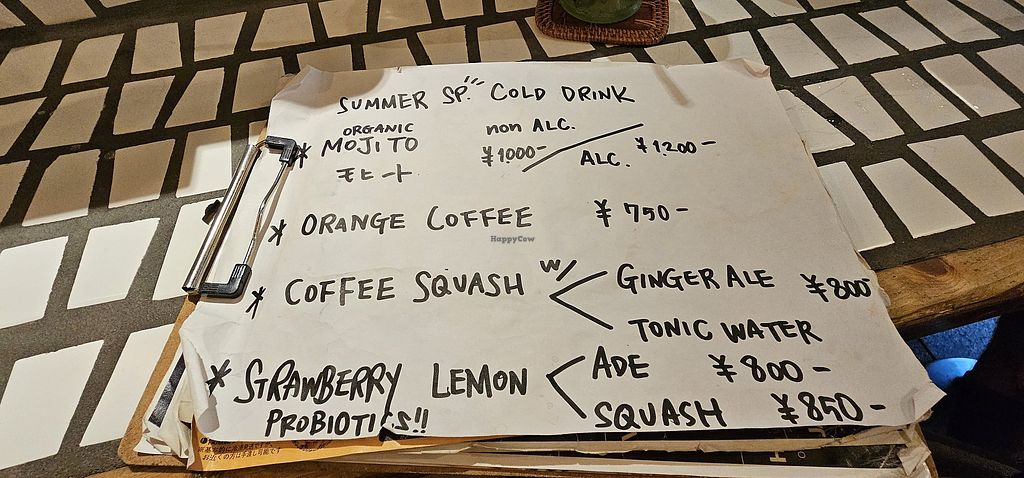 SUMMER SP. COLD DRINK
* ORGANIC MOJITO non ALC. ¥1000- / ALC. ¥1200-
モヒート
* ORANGE COFFEE ¥750-
* COFFEE SQUASH w/ < GINGER ALE ¥800
TONIC WATER
* STRAWBERRY LEMON < ADE ¥800-
PROBIOTICS!! SQUASH ¥850-
HappyCow